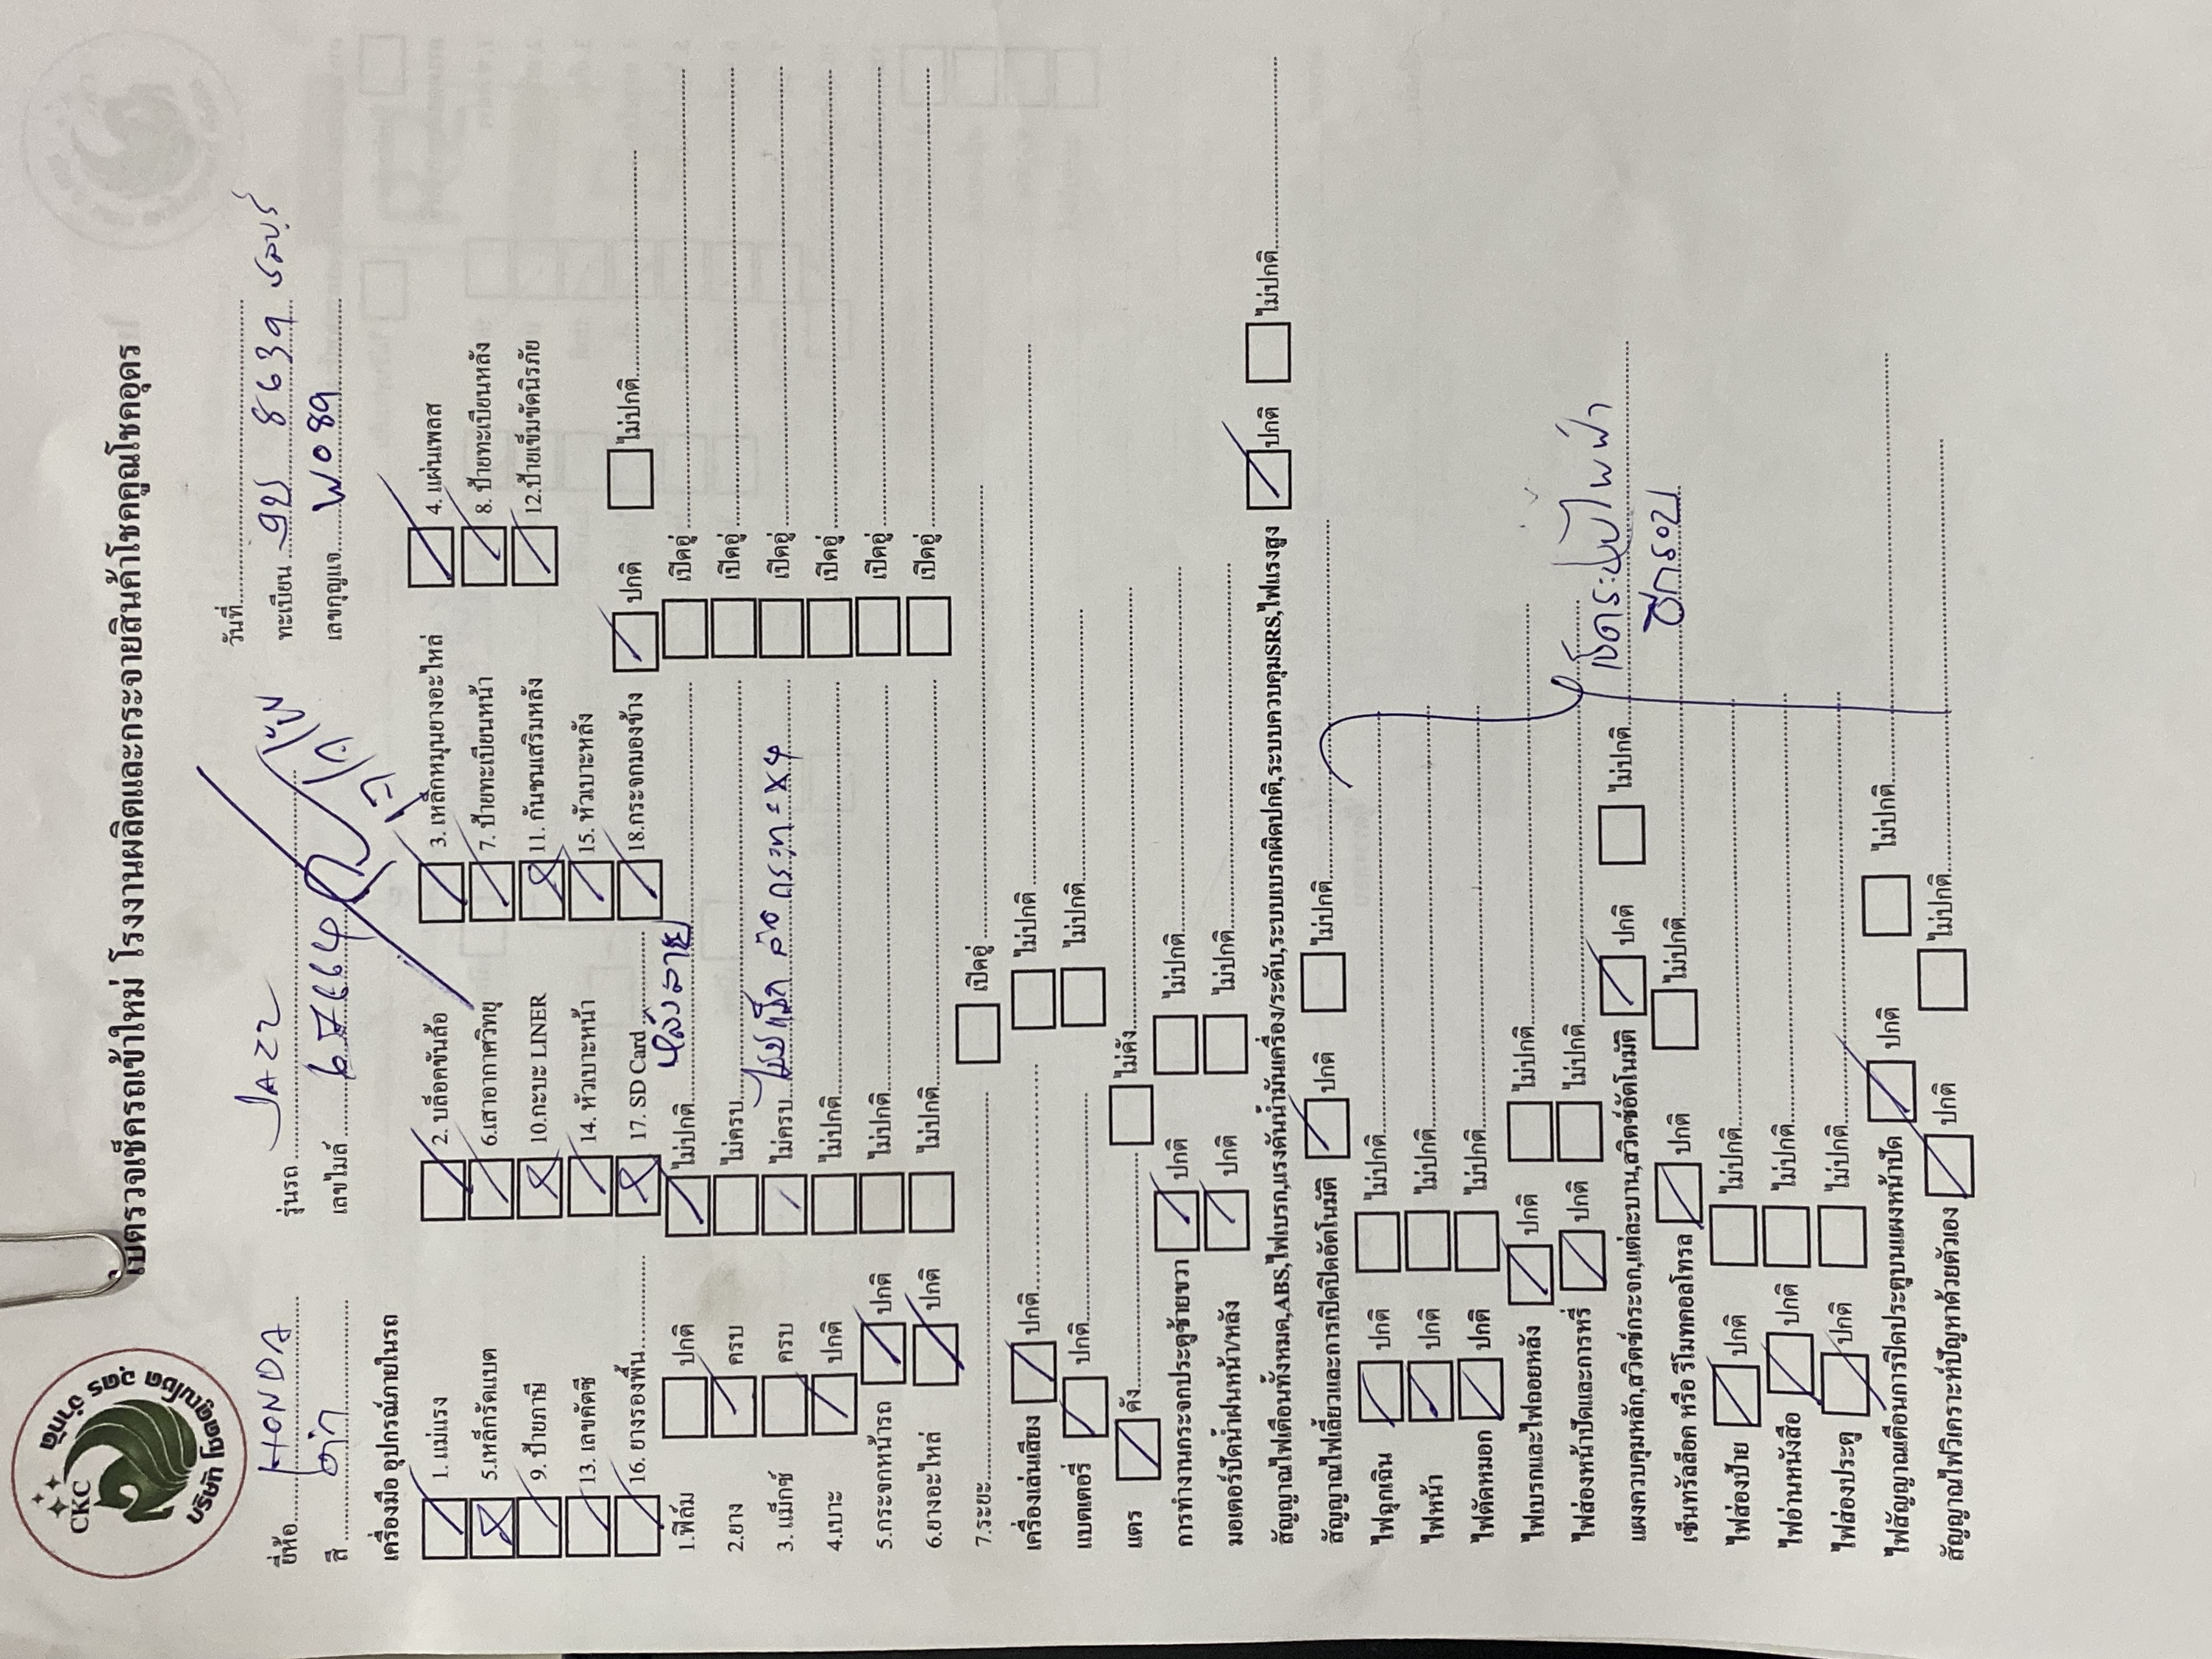 CKC
บริษัท โชคคูณโชค อุดร จำกัด
ใบตรวจเช็ครถเข้าใหม่ โรงงานผลิตและกระจายสินค้าโชคคูณโชคอุดร
วันที่
ยี่ห้อ HONDA รุ่นรถ JAZZ ทะเบียน 8639 ชลบุรี
สี ดำ เลขไมล์ เลขกุญแจ W089
เครื่องมือ อุปกรณ์ภายในรถ
1. แม่แรง 2. บล็อคขันล้อ 3. เหล็กหมุนยางอะไหล่ 4. แผ่นเพลส
5.เหล็กกรัดแบต 6.เสาอากาศวิทยุ 7. ป้ายทะเบียนหน้า 8. ป้ายทะเบียนหลัง
9. ป้ายภาษี 10.กะบะ LINER 11. กันชนเสริมหลัง 12.ป้ายเข็มขัดนิรภัย
13. เลขคัตซี 14. หัวเบาะหน้า 15. หัวเบาะหลัง
16. ยางรองพื้น 17. SD Card 18.กระจกมองข้าง ปกติ ไม่ปกติ
1.ฟิล์ม ปกติ ไม่ปกติ หลังลาย เปิดอู่
2.ยาง ครบ ไม่ครบ เปิดอู่
3. แม็กซ์ ครบ ไม่ครบ เปิดอู่
4.เบาะ ปกติ ไม่ปกติ เปิดอู่
5.กระจกหน้ารถ ปกติ ไม่ปกติ เปิดอู่
6.ยางอะไหล่ ปกติ ไม่ปกติ เปิดอู่
7.ระยะ เปิดอู่
เครื่องเล่นเสียง ปกติ ไม่ปกติ
แบตเตอรี่ ปกติ ไม่ปกติ
แตร ดัง ไม่ดัง
การทำงานกระจกประตูซ้ายขวา ปกติ ไม่ปกติ
มอเตอร์ปัดน้ำฝนหน้า/หลัง ปกติ ไม่ปกติ
สัญญาณไฟเตือนทั้งหมด,ABS,ไฟเบรก,แรงดันน้ำมันเครื่อง/ระดับ,ระบบเบรกผิดปกติ,ระบบควบคุมSRS,ไฟแรงสูง ปกติ ไม่ปกติ
สัญญาณไฟเลี้ยวและการเปิดปิดอัตโนมัติ ปกติ ไม่ปกติ
ไฟฉุกเฉิน ปกติ ไม่ปกติ
ไฟหน้า ปกติ ไม่ปกติ
ไฟตัดหมอก ปกติ ไม่ปกติ
ไฟเบรกและไฟถอยหลัง ปกติ ไม่ปกติ
ไฟส่องหน้าปัดและการหรี่ ปกติ ไม่ปกติ
แผงควบคุมหลัก,สวิตซ์กระจก,แต่ละบาน,สวิตซ์อัตโนมัติ ปกติ ไม่ปกติ
เซ็นทรัลล็อค หรือ รีโมทคอลโทรล ปกติ ไม่ปกติ
ไฟส่องป้าย ปกติ ไม่ปกติ
ไฟอ่านหนังสือ ปกติ ไม่ปกติ
ไฟส่องประตู ปกติ ไม่ปกติ
ไฟสัญญาณเตือนการปิดประตูบนแผงหน้าปัด ปกติ ไม่ปกติ
สัญญาณไฟวิเคราะห์ปัญหาด้วยตัวเอง ปกติ ไม่ปกติ